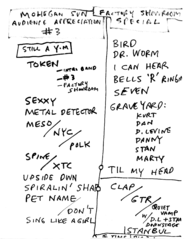 MOHEGAN SUN
AUDIENCE APPRECIATION
#3
STILL A Y-M
TOKEN
- INTRO BAND
- #3
- FACTORY SHOWROOM
SEXXY
METAL DETECTOR
MESO/
NYC/
POLK
SPINE/
XTC
UPSIDE DWN
SPIRALIN' SHAP
PET NAME
/DON'T
SING LIKE A GIRL
FACTORY SHOWROOM
SPECIAL
BIRD
DR. WORM
I CAN HEAR
BELLS 'R' RINGIN
SEVEN
GRAVEYARD:
KURT
DAN
D. LEVINE
DANNY
STAN
MARTY
TIL MY HEAD
CLAP/
GTR/
QUIET
VAMP
W/ D.L + STAN
DOWNSTAGE
ISTANBUL